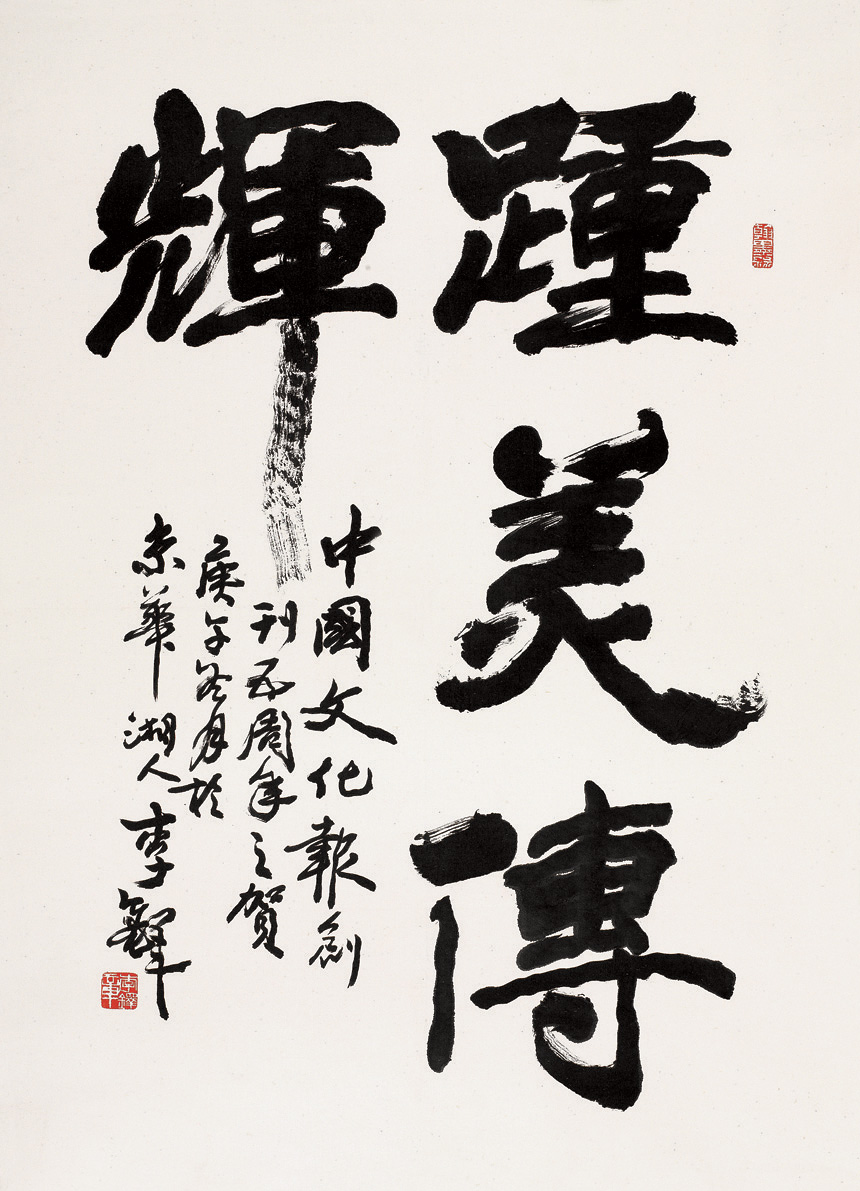 踵美傳
輝
中國文化報創
刊五周年之賀
庚午冬月於
京華湖人李鐸